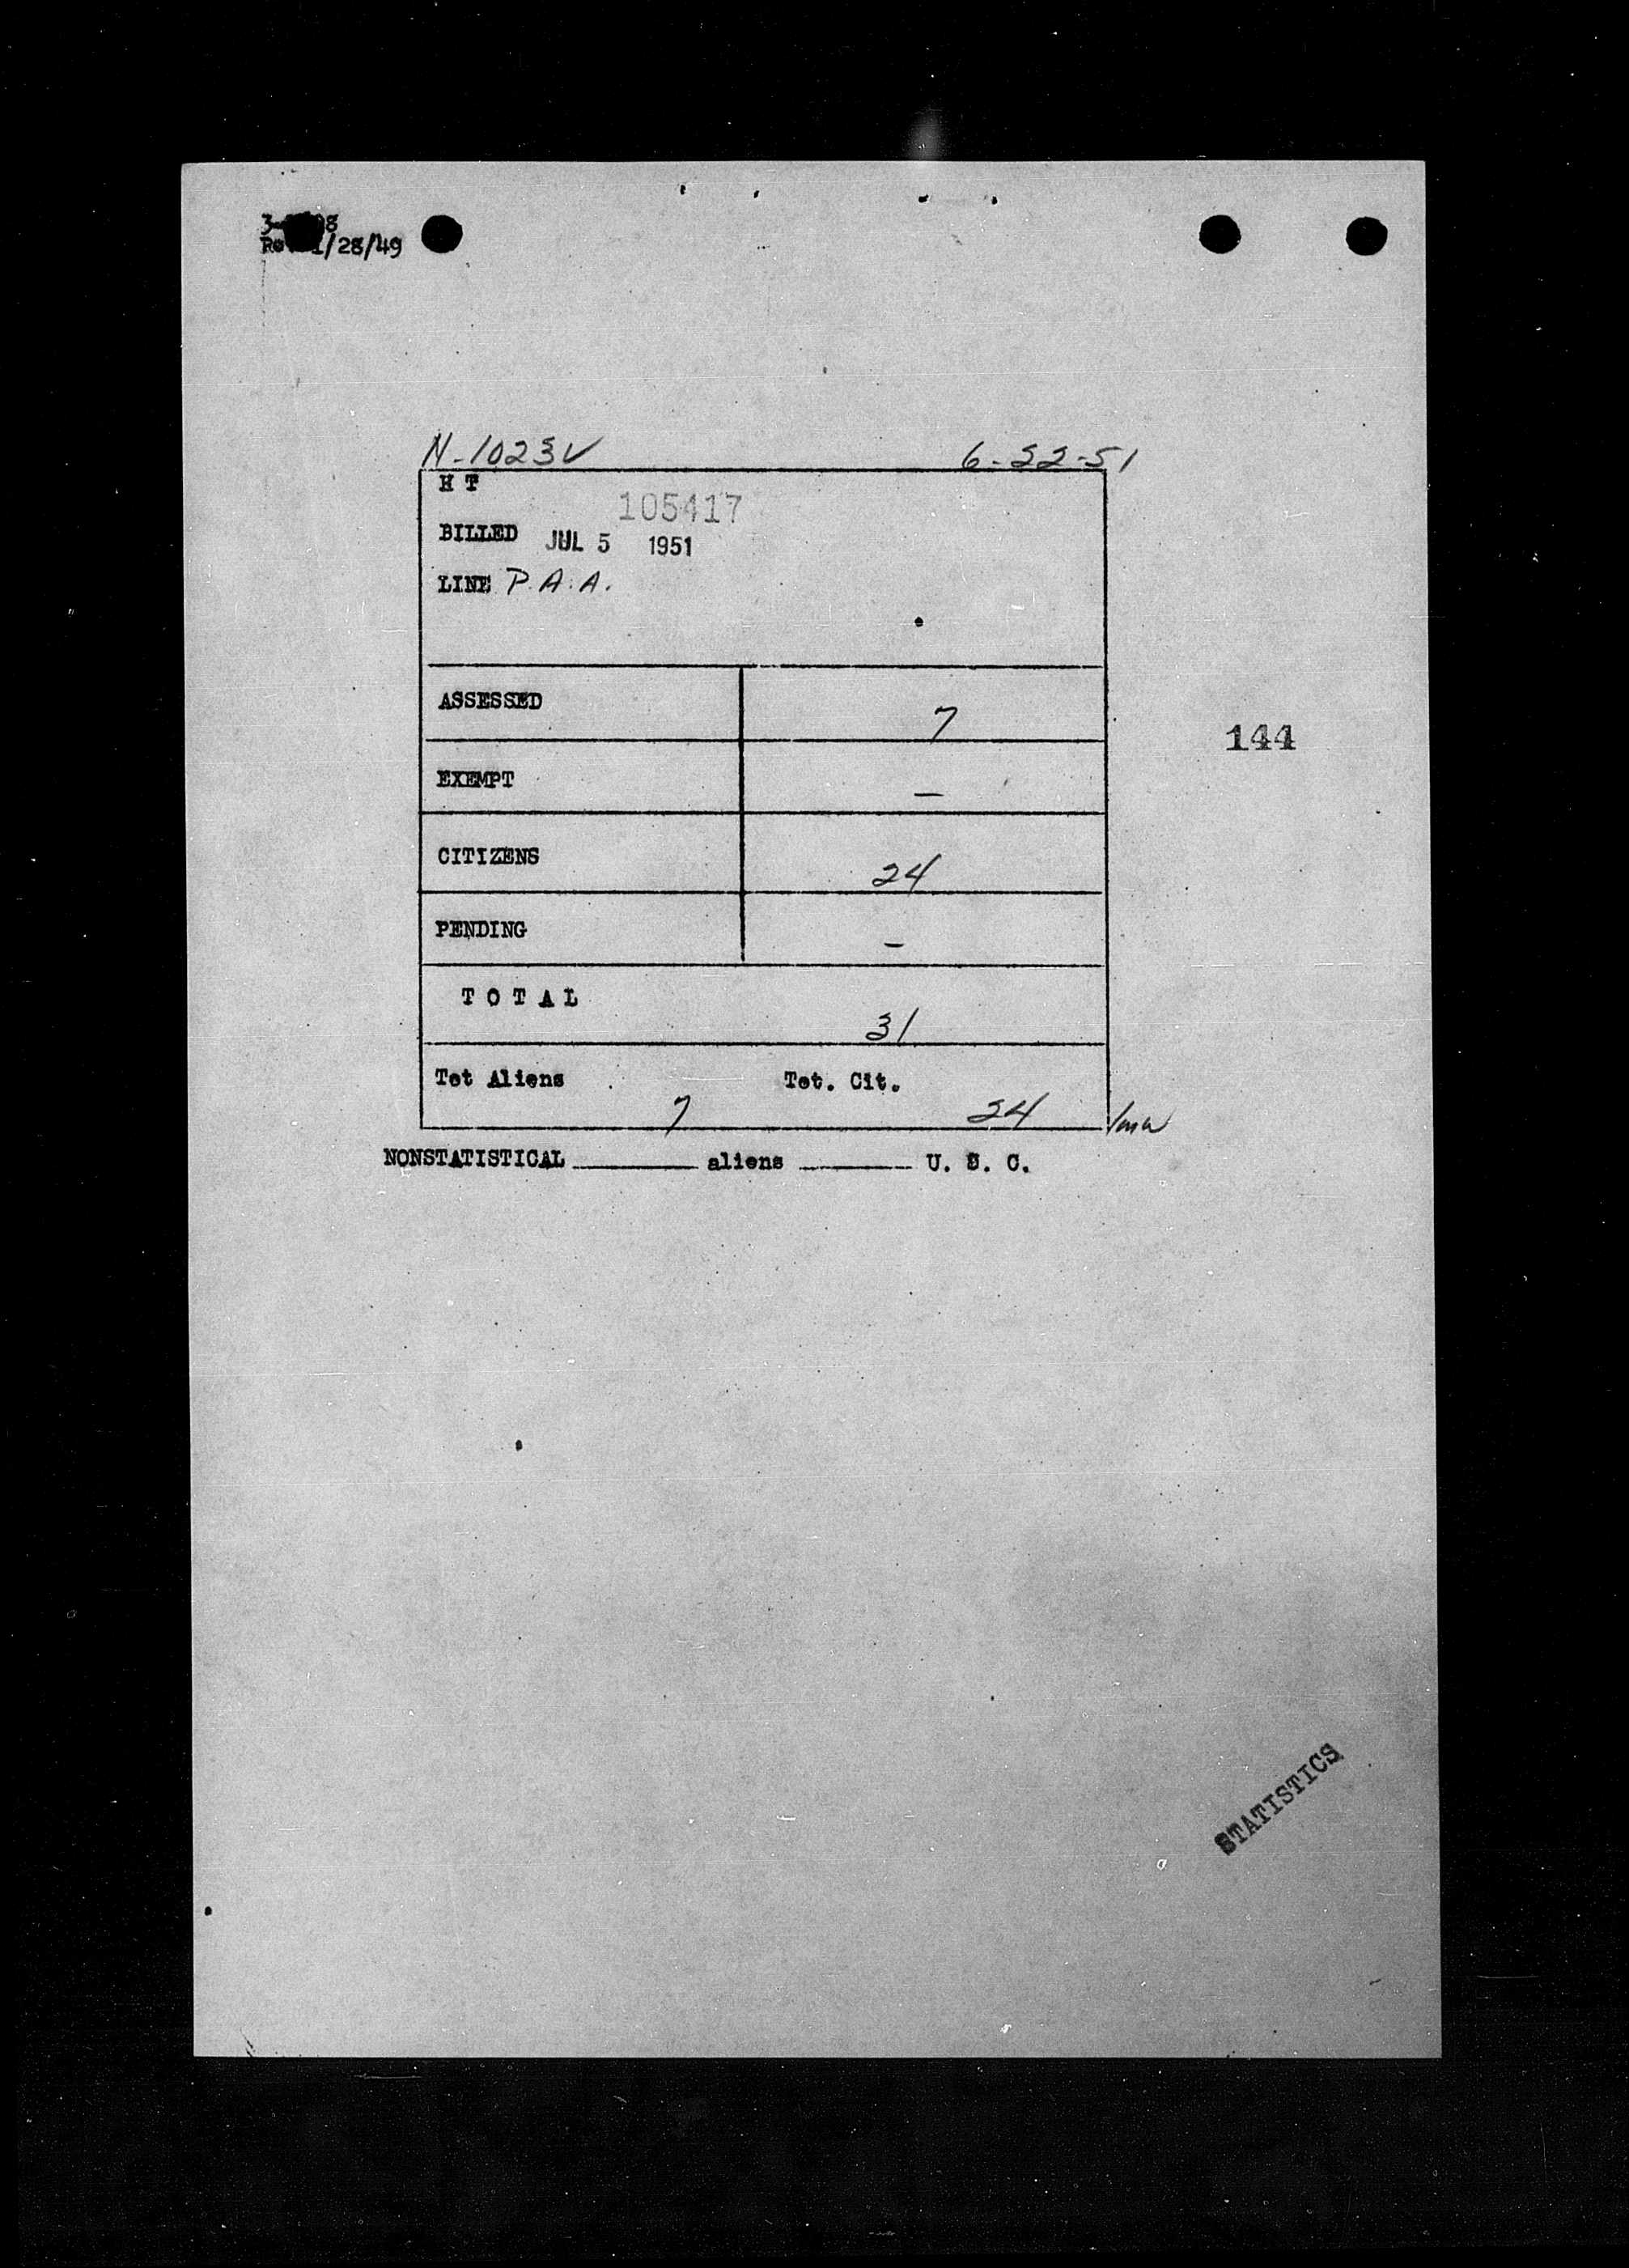 Rev 1/28/49
N-1023V 6-22-51
H T
105417
BILLED JUL 5 1951
LINE P.A.A.
ASSESSED 7
144
EXEMPT –
CITIZENS 24
PENDING –
T O T A L
31
Tot Aliens Tot. Cit.
7 24
NONSTATISTICAL ________ aliens ________ U. S. C.
STATISTICS